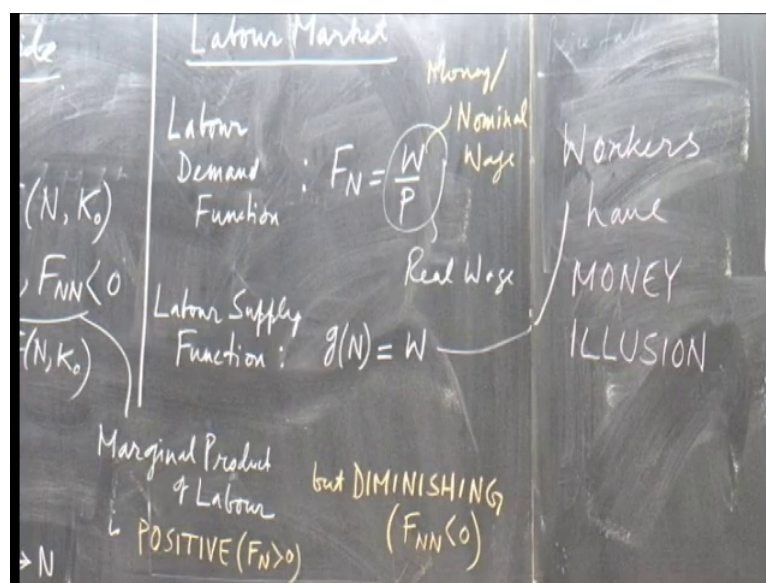 Labour Market
Money/
Nominal
Wage
Labour
Demand
Function
: F_N = W/P
Real Wage
Labour Supply
Function : g(N) = W
Workers
have
MONEY
ILLUSION
(N, K₀)
, F_NN < 0
F(N, K₀)
Marginal Product
of Labour
POSITIVE (F_N > 0)
but DIMINISHING
(F_NN < 0)
→ N